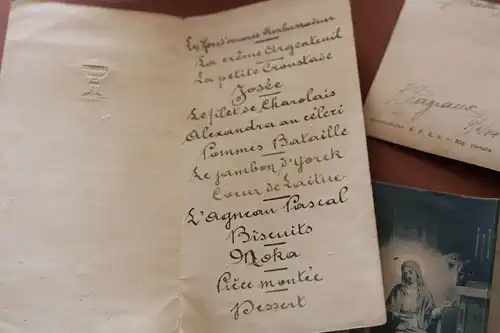 Les Hors d'œuvres Ambassadeur
La crème Argenteuil
La petite Croustade
Josée
Le filet de Charolais
Alexandra au céleri
Pommes Bataille
Le jambon d'Yorck
Cœur de Laitue
L'Agneau Pascal
Biscuits
Moka
Pièce montée
Dessert